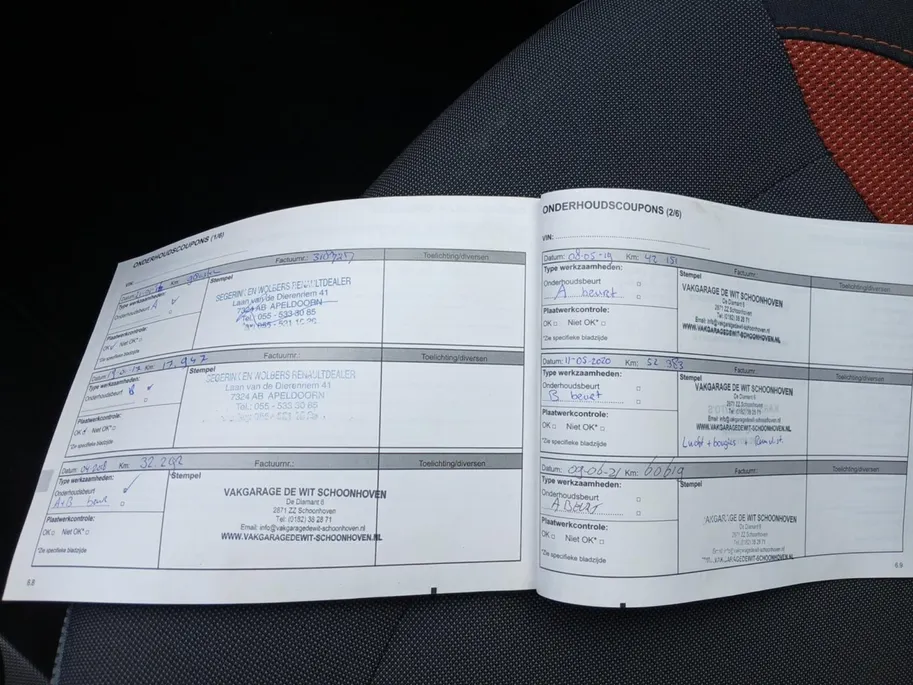 ONDERHOUDSCOUPONS (1/6)
VIN:
Datum: Km: Factuurnr.: Toelichting/diversen
Type werkzaamheden: Stempel
Onderhoudsbeurt A
SEGERINK EN WOLBERS RENAULTDEALER
Laan van de Dierenriem 41
7324 AB APELDOORN
Tel.: 055 - 533 30 85
Plaatwerkcontrole:
OK Niet OK*
*De specifieke bladzijde
Datum: Km: 17.947 Factuurnr.: Toelichting/diversen
Type werkzaamheden: Stempel
Onderhoudsbeurt B
SEGERINK EN WOLBERS RENAULTDEALER
Laan van de Dierenriem 41
7324 AB APELDOORN
Tel.: 055 - 533 30 85
Plaatwerkcontrole:
OK Niet OK*
*De specifieke bladzijde
Datum: Km: 32.202 Factuurnr.: Toelichting/diversen
Type werkzaamheden: Stempel
Onderhoudsbeurt
A+B beurt
VAKGARAGE DE WIT SCHOONHOVEN
De Diamant 6
2871 ZZ Schoonhoven
Tel: (0182) 38 28 71
Email: info@vakgaragedewit-schoonhoven.nl
WWW.VAKGARAGEDEWIT-SCHOONHOVEN.NL
Plaatwerkcontrole:
OK Niet OK*
*De specifieke bladzijde
6.8
ONDERHOUDSCOUPONS (2/6)
VIN:
Datum: 08-05-19 Km: 42 151 Factuurnr.: Toelichting/diversen
Type werkzaamheden: Stempel
Onderhoudsbeurt
A beurt
VAKGARAGE DE WIT SCHOONHOVEN
De Diamant 6
2871 ZZ Schoonhoven
Tel: (0182) 38 28 71
Email: info@vakgaragedewit-schoonhoven.nl
WWW.VAKGARAGEDEWIT-SCHOONHOVEN.NL
Plaatwerkcontrole:
OK Niet OK*
*De specifieke bladzijde
Datum: 11-05-2020 Km: 52 383 Factuurnr.: Toelichting/diversen
Type werkzaamheden: Stempel
Onderhoudsbeurt
B beurt
VAKGARAGE DE WIT SCHOONHOVEN
De Diamant 6
2871 ZZ Schoonhoven
Tel: (0182) 38 28 71
Email: info@vakgaragedewit-schoonhoven.nl
WWW.VAKGARAGEDEWIT-SCHOONHOVEN.NL
Lucht + bougies +
Plaatwerkcontrole:
OK Niet OK*
*De specifieke bladzijde
Datum: 09-06-21 Km: 60619 Factuurnr.: Toelichting/diversen
Type werkzaamheden: Stempel
Onderhoudsbeurt
A BEURT
VAKGARAGE DE WIT SCHOONHOVEN
De Diamant 6
2871 ZZ Schoonhoven
Tel: (0182) 38 28 71
Email: info@vakgaragedewit-schoonhoven.nl
WWW.VAKGARAGEDEWIT-SCHOONHOVEN.NL
Plaatwerkcontrole:
OK Niet OK*
*De specifieke bladzijde
6.9